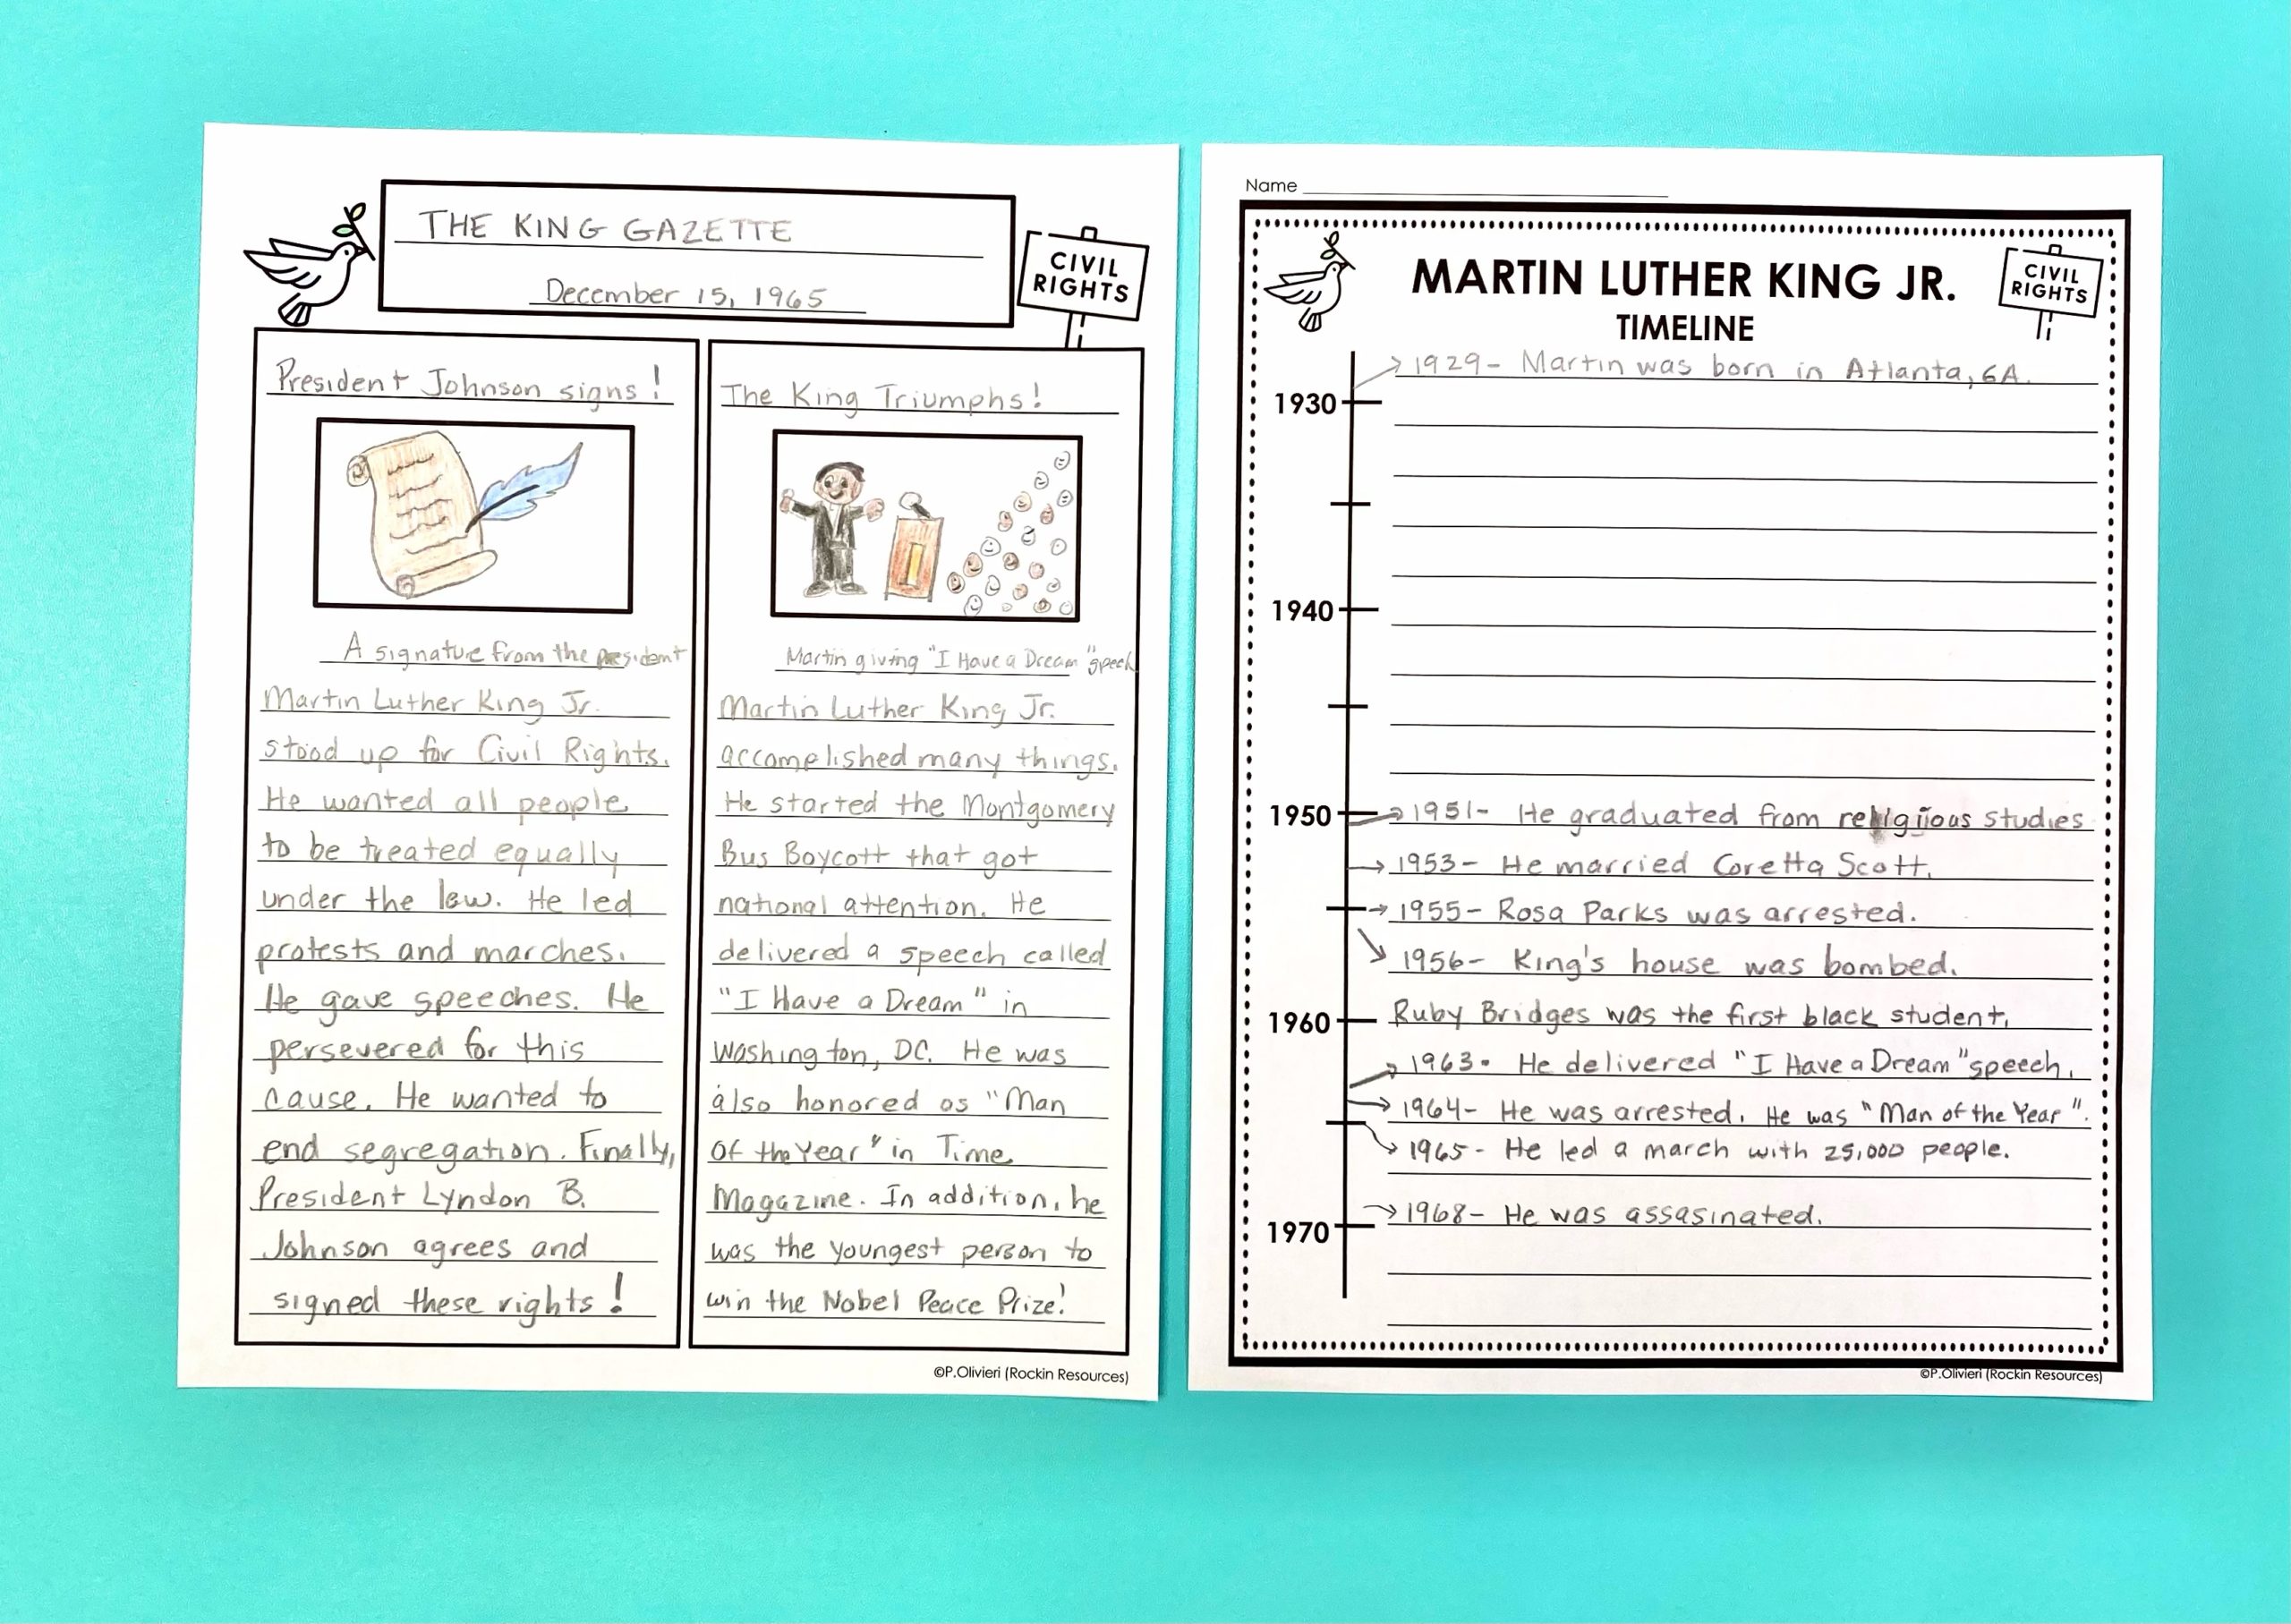 THE KING GAZETTE
December 15, 1965
CIVIL
RIGHTS
President Johnson signs!
A signature from the president
Martin Luther King Jr.
stood up for Civil Rights.
He wanted all people
to be treated equally
under the law. He led
protests and marches.
He gave speeches. He
persevered for this
cause. He wanted to
end segregation. Finally,
President Lyndon B.
Johnson agrees and
signed these rights!
The King Triumphs!
Martin giving "I Have a Dream" speech
Martin Luther King Jr.
accomplished many things.
He started the Montgomery
Bus Boycott that got
national attention. He
delivered a speech called
"I Have a Dream" in
Washington, DC. He was
also honored as "Man
Of the Year" in Time
Magazine. In addition, he
was the youngest person to
win the Nobel Peace Prize!
©P.Olivieri (Rockin Resources)
Name
MARTIN LUTHER KING JR.
TIMELINE
CIVIL
RIGHTS
1929- Martin was born in Atlanta, GA.
1930
1940
1950 1951- He graduated from religiious studies
1953- He married Coretta Scott.
1955- Rosa Parks was arrested.
1956- King's house was bombed.
1960 Ruby Bridges was the first black student.
1963- He delivered "I Have a Dream" speech.
1964- He was arrested. He was "Man of the Year".
1965- He led a march with 25,000 people.
1968- He was assasinated.
1970
©P.Olivieri (Rockin Resources)